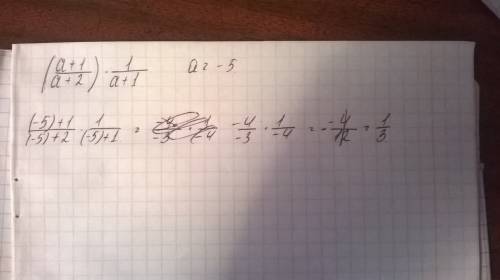 ((a+1)/(a+2)) · 1/(a+1) a = -5
((-5)+1)/((-5)+2) · 1/((-5)+1) = -4/-3 · 1/-4 = -4/12 = 1/3